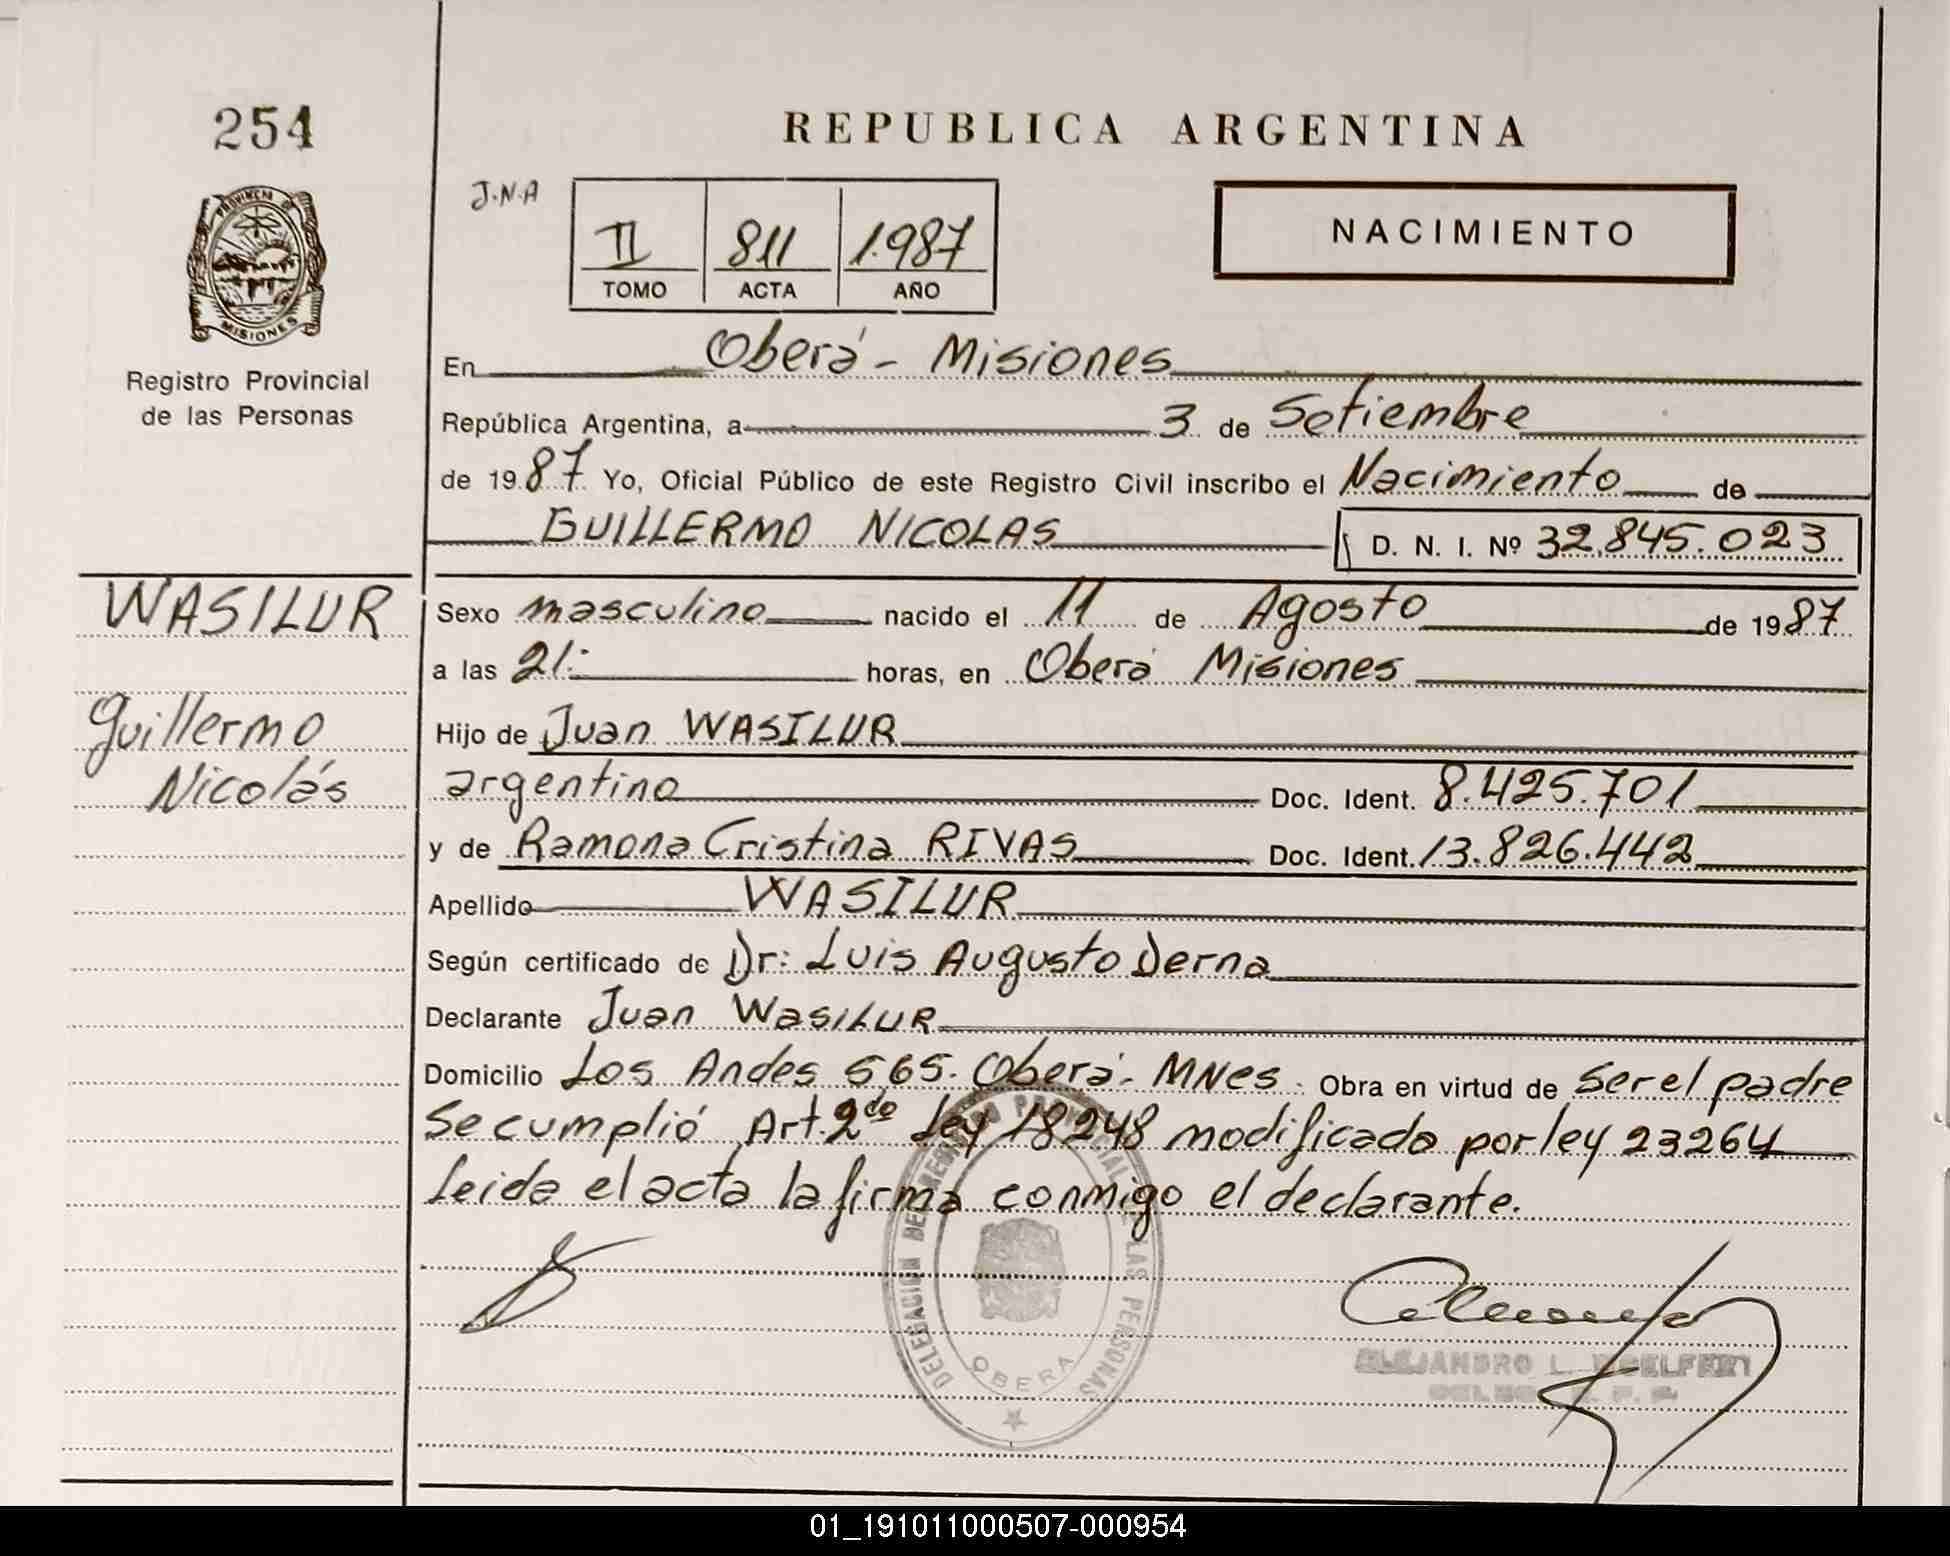 254
REPUBLICA ARGENTINA
J.N.A
II 811 1.987
TOMO ACTA AÑO
NACIMIENTO
PROVINCIA DE
MISIONES
Registro Provincial
de las Personas
En Oberá - Misiones
República Argentina, a 3 de Setiembre
de 19 87 Yo, Oficial Público de este Registro Civil inscribo el Nacimiento de
GUILLERMO NICOLAS D. N. I. Nº 32.845.023
WASILUR
Guillermo
Nicolás
Sexo masculino nacido el 11 de Agosto de 19 87
a las 21:- horas, en Oberá Misiones
Hijo de Juan WASILUR
argentino Doc. Ident. 8.425.701
y de Ramona Cristina RIVAS Doc. Ident. 13.826.442
Apellido WASILUR
Según certificado de Dr: Luis Augusto Derna
Declarante Juan WASILUR
Domicilio Los Andes 565. Oberá - MNes. Obra en virtud de ser el padre
Se cumplió Art. 2do Ley 18248 modificada por ley 23264
Leida el acta la firma conmigo el declarante.
DELEGACION DEL REGISTRO PROVINCIAL DE LAS PERSONAS
OBERA
ALEJANDRO L.
01_191011000507-000954